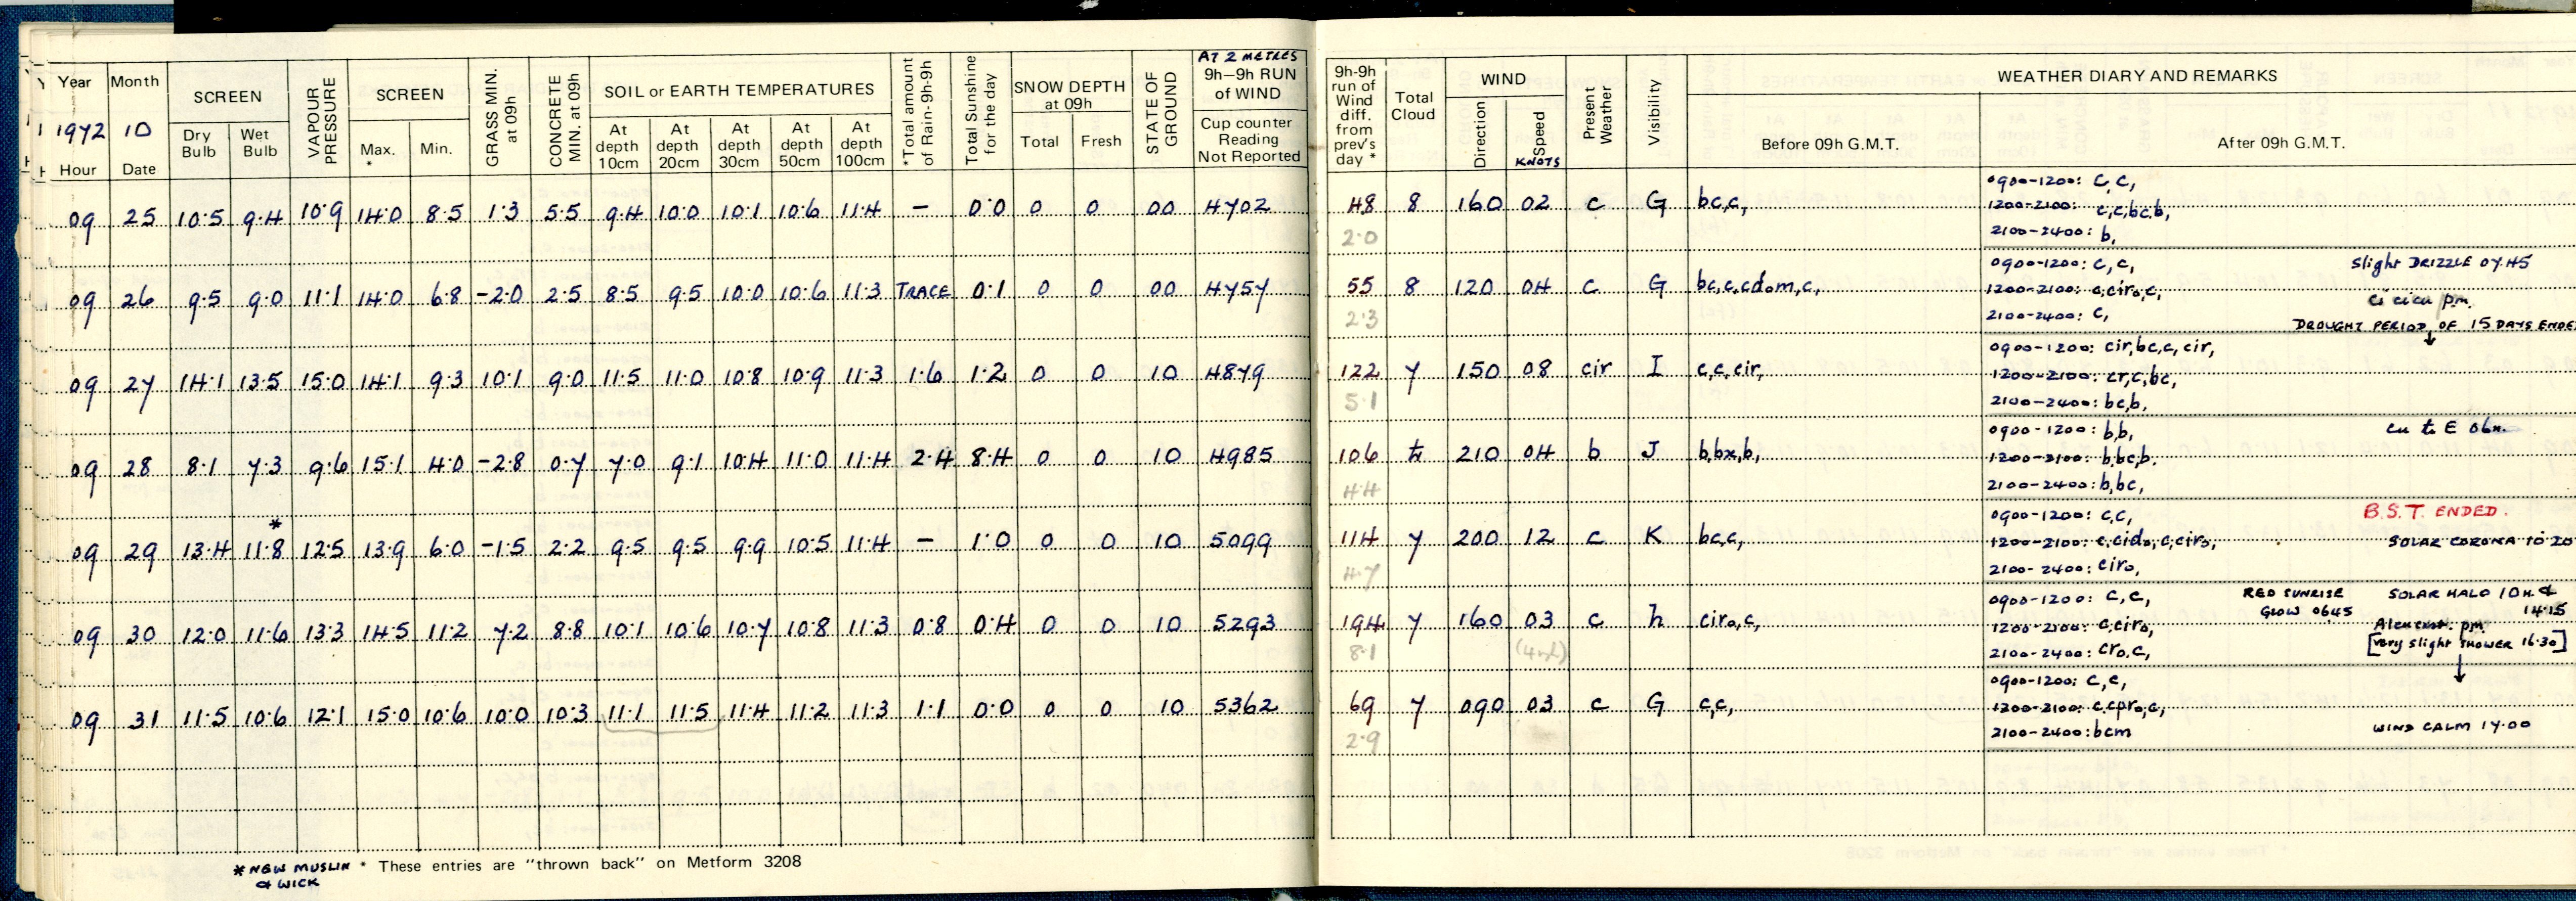 Year Month SCREEN VAPOUR PRESSURE SCREEN GRASS MIN. at 09h CONCRETE MIN. at 09h SOIL or EARTH TEMPERATURES *Total amount of Rain-9h-9h Total Sunshine for the day SNOW DEPTH at 09h STATE OF GROUND AT 2 METRES 9h–9h RUN of WIND
1972 10 Dry Bulb Wet Bulb Max. * Min. At depth 10cm At depth 20cm At depth 30cm At depth 50cm At depth 100cm Total Fresh Cup counter Reading Not Reported
Hour Date
09 25 10·5 9·4 10·9 14·0 8·5 1·3 5·5 9·4 10·0 10·1 10·6 11·4 – 0·0 0 0 00 4702
09 26 9·5 9·0 11·1 14·0 6·8 -2·0 2·5 8·5 9·5 10·0 10·6 11·3 TRACE 0·1 0 0 00 4757
09 27 14·1 13·5 15·0 14·1 9·3 10·1 9·0 11·5 11·0 10·8 10·9 11·3 1·6 1·2 0 0 10 4879
09 28 8·1 7·3 9·6 15·1 4·0 -2·8 0·7 7·0 9·1 10·4 11·0 11·4 2·4 8·4 0 0 10 4985
*
09 29 13·4 11·8 12·5 13·9 6·0 -1·5 2·2 9·5 9·5 9·9 10·5 11·4 – 1·0 0 0 10 5099
09 30 12·0 11·6 13·3 14·5 11·2 7·2 8·8 10·1 10·6 10·7 10·8 11·3 0·8 0·4 0 0 10 5293
09 31 11·5 10·6 12·1 15·0 10·6 10·0 10·3 11·1 11·5 11·4 11·2 11·3 1·1 0·0 0 0 10 5362
*NEW MUSLIN & WICK
* These entries are "thrown back" on Metform 3208
9h-9h run of Wind diff. from prev's day * Total Cloud WIND Present Weather Visibility WEATHER DIARY AND REMARKS
Direction Speed KNOTS Before 09h G.M.T. After 09h G.M.T.
0900-1200: c,c,
48 8 160 02 c G bc,c, 1200-2100: c,c,bc,b,
2·0 2100-2400: b,
0900-1200: c,c, Slight DRIZZLE 07.45
55 8 120 04 c G bc,c,cdom,c, 1200-2100: c,ciro,c, ci cicu pm.
2·3 2100-2400: c, DROUGHT PERIOD OF 15 DAYS ENDE
0900-1200: cir,bc,c,cir,
122 7 150 08 cir I c,c,cir, 1200-2100: cr,c,bc,
5·1 2100-2400: bc,b,
0900-1200: b,b, cu to E
106 210 04 b J b,bx,b, 1200-2100: b,bc,b.
4·4 2100-2400: b,bc,
0900-1200: c,c, B.S.T ENDED.
114 7 200 12 c K bc,c, 1200-2100: c,cido,c,ciro, SOLAR CORONA 10·20
4·7 2100-2400: ciro,
0900-1200: c,c, RED SUNRISE GLOW 0645 SOLAR HALO 104. & 14·15
194 7 160 03 c h ciro,c, 1200-2100: c,ciro, pm.
8·1 2100-2400: cro,c, [very slight SHOWER 16·30]
0900-1200: c,c,
69 7 090 03 c G c,c, 1200-2100: c,cpro,c,
2·9 2100-2400: bcm WIND CALM 17.00